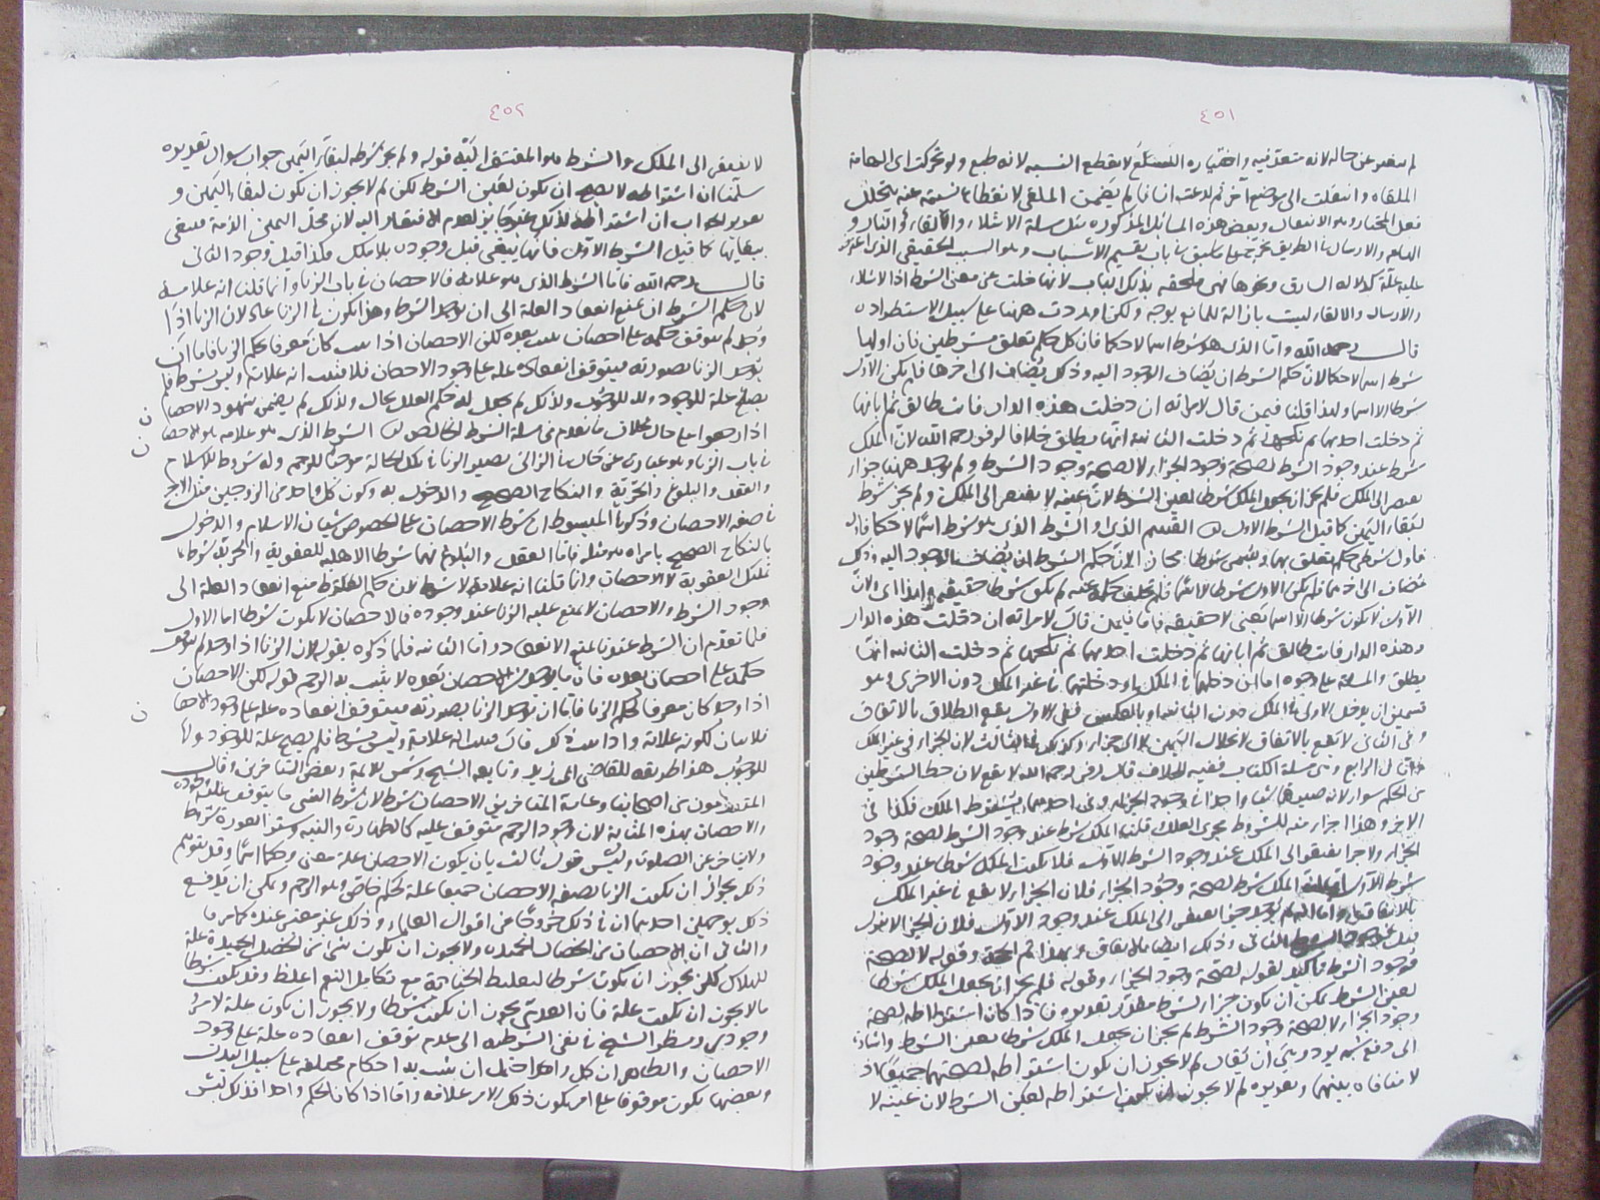 ٤٥١
لم يتغير عن حاله لانه متعد فيه واختياره لا يقطع النسبة لانه طبع ولو تحركت اى الهامة
الملقاه وانتقلت الى موضع آخر ثم لدغت انسانا لم يضمن الملقى لانقطاع نسبته عنه بتخلل
فعل المختار وهو الانتقال وبعض هذه المسائل المذكورة مثل مسلة الاشلاء والقاء النار و
الهامة والارسال فى الطريق فى باب تقسيم الاسباب وهو السبب الحقيقى الذى
عليه علة كدلالة السارق ونحوها فهى ملحقة بذلك الباب لانها خلت عن معنى الشرط اذ الاشلاء
والارسال والالقاء ليست بازالة للمانع بوجه ولكن وردت ههنا على سبيل الاستطراد
قال رحمه الله واما الذى هو شرط اسما لا حكما فان كل حكم تعلق بشرطين فان اولهما
شرط اسما لا حكما لان حكم الشرط ان يضاف الوجود اليه وذلك يضاف الى اخرهما فلم يكن الاول
شرطا الا اسما ولهذا قلنا فيمن قال لامراته ان دخلت هذه الدار فانت طالق ثم ابانها
ثم دخلت احديهما ثم نكحها ثم دخلت الثانية انها تطلق خلافا لزفر رحمه الله لان الملك
شرط عند وجود الشرط لصحة وجود الجزاء لا لصحة وجود الشرط ولم يوجد ههنا جزاء
يفتقر الى الملك فلم يجز ان يجعل الملك شرطا لعين الشرط لان عينه لا يفتقر الى الملك ولم يجز شرط
لبقاء اليمين كما قبل الشرط الاول القسم الذى والشرط الذى هو شرط اسما لا حكما
فاول شرطى حكم يتعلق بهما ويسمى شرطا مجازا لان حكم الشرط ان يضاف الوجود اليه وذلك
مضاف الى اخرهما فلم يكن الاول شرطا الا اسما فلم تخلف حكمه عنه لم يكن شرطا حقيقة ولهذا اى ولان
الاول لا يكون شرطا الا اسما يعنى لا حقيقة قلنا فيمن قال لامراته ان دخلت هذه الدار
وهذه الدار فانت طالق ثم ابانها ثم دخلت احديهما ثم نكحها ثم دخلت الثانية انها
يطلق والمسلة على وجوه اما ان دخلتهما فى الملك او دخلتهما فى غير الملك دون الاخرى وهو
قسمين ان يوجد الاولى فى الملك دون الثانية او بالعكس ففى الاول يقع الطلاق بالاتفاق
وفى الثانى لا يقع بالاتفاق لانحلال اليمين لا الى جزاء وكذلك فى الثالث لان الجزاء فى غير الملك
فى الرابع وهى مسلة الكتاب ففيه الخلاف قال زفر رحمه الله لا يقع لان الشرطين
من الحكم سواء وجود الجزاء وفى احديهما يشترط الملك فكذا فى
الاخر وهذا قلنا الملك شرط عند وجود الشرط لصحة وجود
الجزاء ولا جزاء يفتقر الى الملك عند وجود الشرط الاول فلا يكون الملك شرطا عند وجود
شرط الاول الملك شرط لصحة وجود الجزاء فلان الجزاء لا يقع فى غير الملك
بالاتفاق واما انه لم يوجد جزء يفتقر الى الملك عند وجود الاول فلان الجزاء لا ينزل
قبل وجود الشرط الثانى وذلك ايضا بالاتفاق وبهذا تم الحجة وقوله لا لصحة
وجود الشرط تاكيد لقوله لصحة وجود الجزاء وقوله فلم يجز ان يجعل الملك شرطا
لعين الشرط يمكن ان يكون جزاء لشرط مقدر تقديره فاذا كان اشتراطه لصحة
وجود الجزاء لا لصحة وجود الشرط لم يجز ان يجعل الملك شرطا لعين الشرط واشارة
الى دفع شبهة يورد وهى ان يقال لم لا يجوز ان يكون اشتراطه لصحتهما جميعا اذ
لا منافاة بينهما وتقديره لم لا يجوز ان يكون اشتراطه لعين الشرط لان عينه لا
٤٥٢
لا يفتقر الى الملك والشرط هو المفتقر اليه قوله ولم يجز شرطه لبقاء اليمين جواب سوال تقديره
سلمنا ان اشتراطه لا يصح ان يكون لعين الشرط لكن لم لا يجوز ان يكون لبقاء اليمين و
تقرير الجواب ان اشتراطه لذلك غير جايز لعدم الافتقار اليه لان محل اليمين الذمة فيبقى
ببقائها كما قبل الشرط الاول فانها يبقى قبل وجوده بلا ملك فكذا قبل وجود الثانى
قال رحمه الله فاما الشرط الذى هو علامة فالاحصان فى باب الزنا وانما قلنا انه علامة
لان حكم الشرط ان يمنع انعقاد العلة الى ان يوجد الشرط وهذا لا يكون فى الزنا بحال لان الزنا اذا
وجد لم يتوقف حكمه على احصان يحدث بعده لكن الاحصان اذا ثبت كان معرفا لحكم الزنا فاما ان
يوجد الزنا بصورته فيتوقف انعقاده علة على وجود الاحصان فلا فثبت انه علامة وليس بشرط فلم
يصلح علة للوجود ولا للوجوب ولذلك لم يجعل له حكم العلل بحال ولذلك لم يضمن شهود الاحصان
اذا رجعوا على حال بخلاف ما تقدم فى مسلة الشرط الخالص الشرط الذى هو علامة هو الاحصان
فى باب الزنا وهو عبارة عن حال فى الزانى يصير الزنا فى تلك الحالة موجبا للرجم وله شروط الاسلام
والعقل والبلوغ والحرية والنكاح الصحيح والدخول به وكون كل واحد من الزوجين مثل الاخر
فى صفة الاحصان وذكر فى المبسوط ان شرط الاحصان على الخصوص شيئان الاسلام والدخول
بالنكاح الصحيح بامراة هى مثله فاما العقل والبلوغ فهما شرطا الاهلية للعقوبة والحرية شرط
تكمل العقوبة لا الاحصان وانما قلنا انه علامة لا شرط لان حكم الشرط منع انعقاد العلة الى
وجود الشرط والاحصان لا يمنع علية الزنا عند وجوده فالاحصان لا يكون شرطا اما الاول
فلما تقدم ان الشرط عندنا يمنع الانعقاد واما الثانية فلما ذكره بقوله لان الزنا اذا وجد لم يتوقف
حكمه على احصان بعده فان ما يوجد من الاحصان بعده لا يثبت به الرجم قوله لكن الاحصان
اذا وجد كان معرفا لحكم الزنا فاما ان يوجد الزنا بصورته فيتوقف انعقاده علة على وجود الاحصان
فلا بيان لكونه علامة واذا ثبت ذلك قال فثبت انه علامة وليس بشرط فلم يصلح علة للوجود ولا
للوجوب هذا طريقة للقاضى ابى زيد وتابعه الشيخ وشمس الائمة وبعض المتاخرين وقال
المتقدمون من اصحابنا وعامة المتاخرين الاحصان شرط لان شرط الشى ما يتوقف عليه وجوده
والاحصان بهذه المثابة لان وجود الرجم متوقف عليه كالطهارة والنية وستر العورة
ولا يتاخر عن الصلوة وليس قول ثالث بان يكون الاحصان علة معنى وحكما اسما وقد يتوهم
ذلك بجواز ان يكون الزنا بصفة الاحصان جميعا علة لحكم خاص وهو الرجم ويمكن ان يدفع
ذلك بوجهين احديهما ان فى ذلك خروجا عن اقوال العلماء وذلك غير معتبر عنده كما مر
والثانى ان الاحصان من الخصال الحميدة ولا يجوز ان يكون شى من الخصال الحميدة علة
للهلاك لكن يجوز ان يكون شرطا لتغليظ الجناية مع تكامل النعم اغلظ وقد يكون شرطا
ما لا يجوز ان يكون علة فان العدمى يجوز ان يكون شرطا ولا يجوز ان يكون علة لامر
وجودى ونظر الشيخ فى نفى الشرطية الى عدم توقف انعقاده علة على وجود
الاحصان والظاهر ان كل واحد احتمل ان يثبت به احكام مختلفة على سبيل البدل
وبعضها يكون موقوفا على امر يكون ذلك الامر علامة واما اذا كان الحكم واحدا فذلك ليس